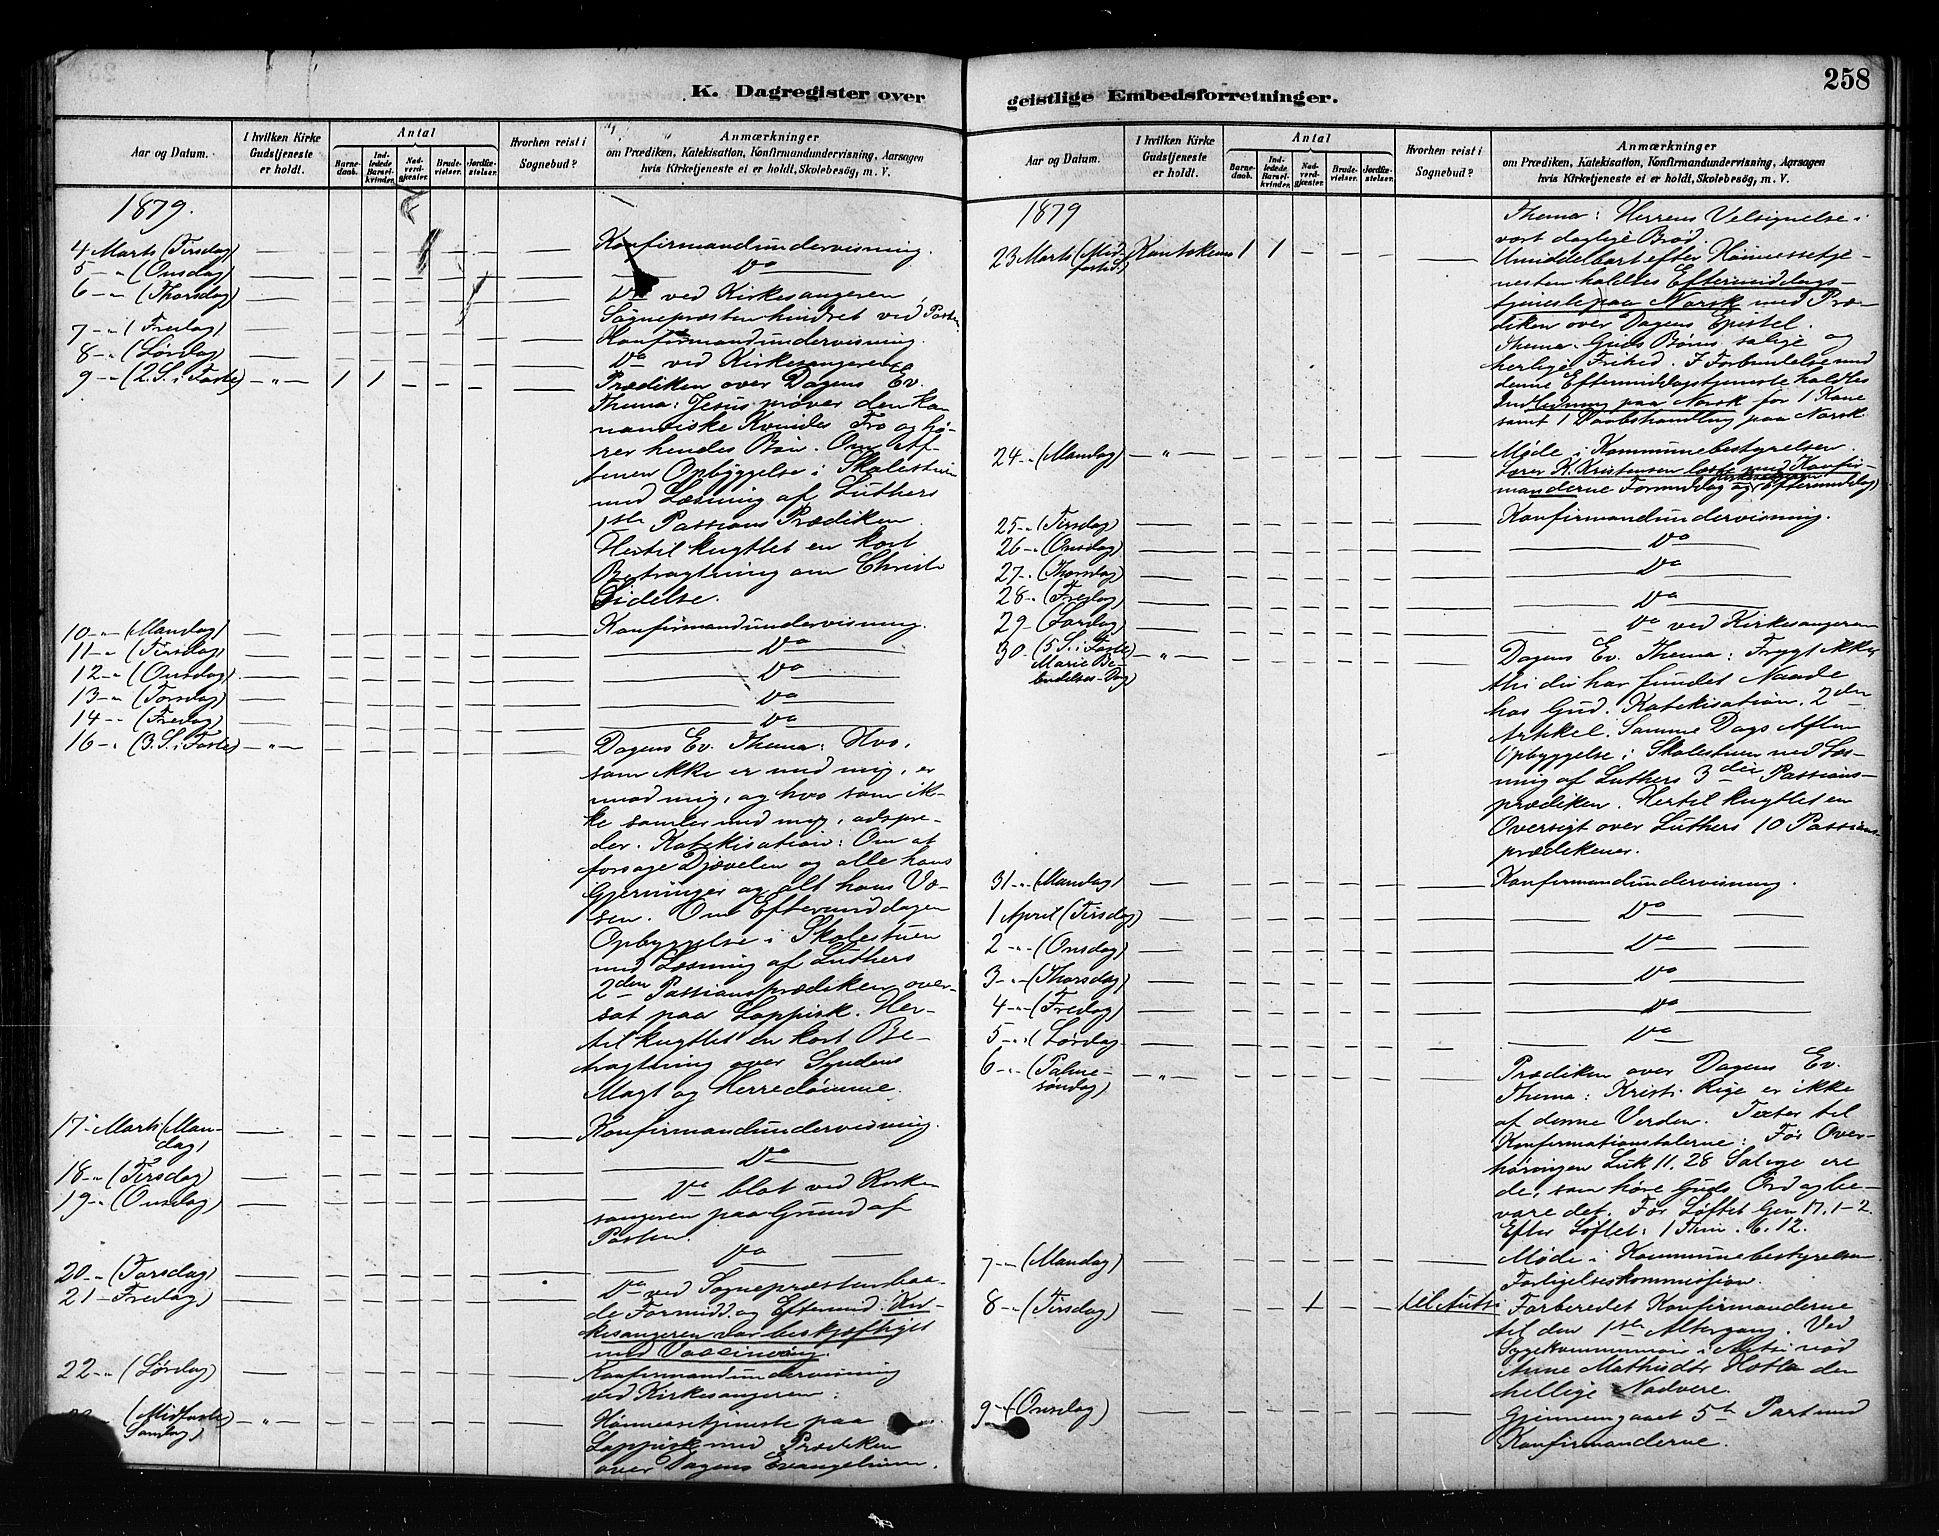 258
K. Dagregister over
geistlige Embedsforretninger.
Aar og Datum.
I hvilken Kirke
Gudstjeneste
er holdt.
Antal
Barne-
daab.
Ind-
ledede
Barsel-
kvinder.
Nad-
verd-
gjester.
Brude-
vielser.
Jordfæ-
stelser.
Hvorhen reist i
Sognebud?
Anmærkninger
om Prædiken, Katekisation, Konfirmandundervisning, Aarsagen
hvis Kirketjeneste ei er holdt, Skolebesøg, m. V.
1879.
4 Marts (Tirsdag) Konfirmandundervisning.
5 -"- (Onsdag) Do
6 -"- (Thorsdag) Do ved Kirkesangeren,
Sognepræsten hindret ved Posten.
7 -"- (Fredag) Konfirmandundervisning.
8 -"- (Lørdag) Do ved Kirkesangeren
9 -"- (2. S. i Faste) -"- 1 1 Prædiken over Dagens Ev.
Thema: Jesus prøver den ka-
nanæiske Kvindes Tro og hø-
rer hendes Bøn. Om Af-
tenen Opbyggelse i Skolestuen
med Læsning af Luthers
1ste Passions Prædiken.
Hertil knyttet en kort
Betragtning om Christi
Lidelse.
10 -"- (Mandag) Konfirmandundervisning.
11 -"- (Tirsdag) Do
12 -"- (Onsdag) Do
13 -"- (Torsdag) Do
14 -"- (Fredag) Do
16 -"- (3. S. i Faste) -"- Dagens Ev. Thema: Hvo,
som ikke er med mig, er
mod mig, og hvo som ik-
ke samler med mig, adspre-
der. Katekisation: Om at
forsage Djævelen og alle hans
Gjerninger og alt hans Væ-
sen. Om Eftermiddagen
Opbyggelse i Skolestuen
med Læsning af Luthers
2den Passionsprædiken over-
sat paa Lappisk. Her-
til knyttet en kort Be-
tragtning over Syndens
Magt og Herredømme.
17 - Marts (Man-
dag) Konfirmandundervisning.
18 -"- (Tirsdag) Do
19 -"- (Onsdag) Do blot ved Kirke
sangeren paa Grund af
Posten.
20 -"- (Torsdag) Do
21 - Fredag) Do ved Sognepræsten baa-
de Formidd. og Eftermid. Kir-
kesangeren var beskjæftiget
med Vaccinering.
22 -"- (Lørdag) Konfirmandundervisning
ved Kirkesangeren.
(Midfaste
Søndag) -"- Høimessetjeneste paa
Lappisk med Prædiken
over Dagens Evangelium.
Aar og Datum.
I hvilken Kirke
Gudstjeneste
er holdt.
Antal
Barne-
daab.
Ind-
ledede
Barsel-
kvinder.
Nad-
verd-
gjester.
Brude-
vielser.
Jordfæ-
stelser.
Hvorhen reist i
Sognebud?
Anmærkninger
om Prædiken, Katekisation, Konfirmandundervisning, Aarsagen
hvis Kirketjeneste ei er holdt, Skolebesøg, m. V.
1879
Thema: Herrens Velsignelse i
vort daglige Brød.
23 Marts (Mid-
faste S.) Kautokeino 1 1 Umiddelbart efter Høimessetje-
nesten holdtes Eftermiddags-
tjeneste paa Norsk med Præ-
diken over Dagens Epistel.
Thema: Guds Børns salige og
herlige Frihed. I Forbindelse med
denne Eftermiddagstjeneste holdtes
Indledning paa Norsk for 1 Kone
samt 1 Daabshandling paa Norsk.
24 -"- (Mandag) -"- Møde i Kommunebestyrelsen.
Lærer K. Kristensen læste med Konfir-
manderne Formiddag og Eftermiddag)
25 -"- (Tirsdag) Konfirmandundervisning.
26 -"- (Onsdag) Do
27 -"- (Thorsdag) Do
28 -"- (Fredag) Do
29 - (Lørdag) Do ved Kirkesangeren
30 - (5. S. i Faste -"- Dagens Ev. Thema: Frygt ikke
Mariæ Be-
budelses-Dag) thi du har fundet Naade
hos Gud. Katekisation. 2den
Artikel. Samme Dags Aften
Opbyggelse i Skolestuen med Læs-
ning af Luthers 3die Passions-
prædiken. Hertil knyttet en
Oversigt over Luthers 10 Passions-
prædikener.
31 -"- (Mandag) Konfirmandundervisning.
1 April (Tirsdag) Do
2 -"- (Onsdag) Do
3 -"- (Thorsdag) Do
4 -"- (Fredag) Do
5 -"- (Lørdag Do
6 -"- (Palme-
søndag) -"- Prædiken over Dagens Ev.
Thema: Kristi Rige er ikke
af denne Verden. Texter til
Konfirmationstalerne: Før Over-
høringen Luk 11. 28 Salige ere
de, som høre Guds Ord og be-
vare det. Før Løftet Gen 17. 1-2.
Efter Løftet: 1 Thim. 6. 12.
7 -"- (Mandag) Møde i Kommunebestyrelsen.
Forligelseskommission.
8 -"- (Tirsdag) 1 til Autsi Forberedet Konfirmanderne
til den 1ste Altergang. Ved
Sygekommunion i Autsi nød
Anne Mathisdtr Hætta den
hellige Nadvere.
9 -"- (Onsdag) Gjennemgaaet 5te Part med
Konfirmanderne.